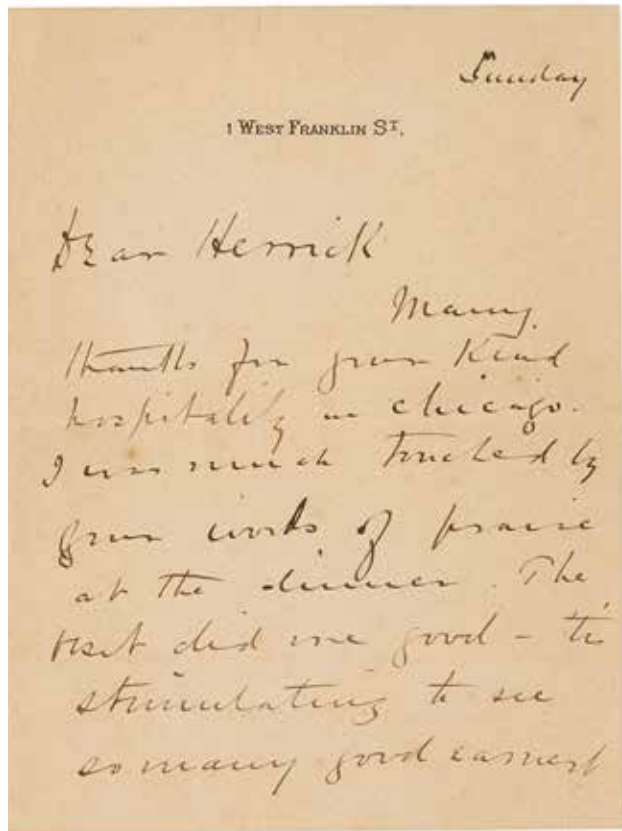 Sunday
1 WEST FRANKLIN ST.
Dear Herrick
Many
thanks for your kind
hospitality in Chicago.
I was much touched by
your words of praise
at the dinner. The
visit did me good - tis
stimulating to see
so many good earnest